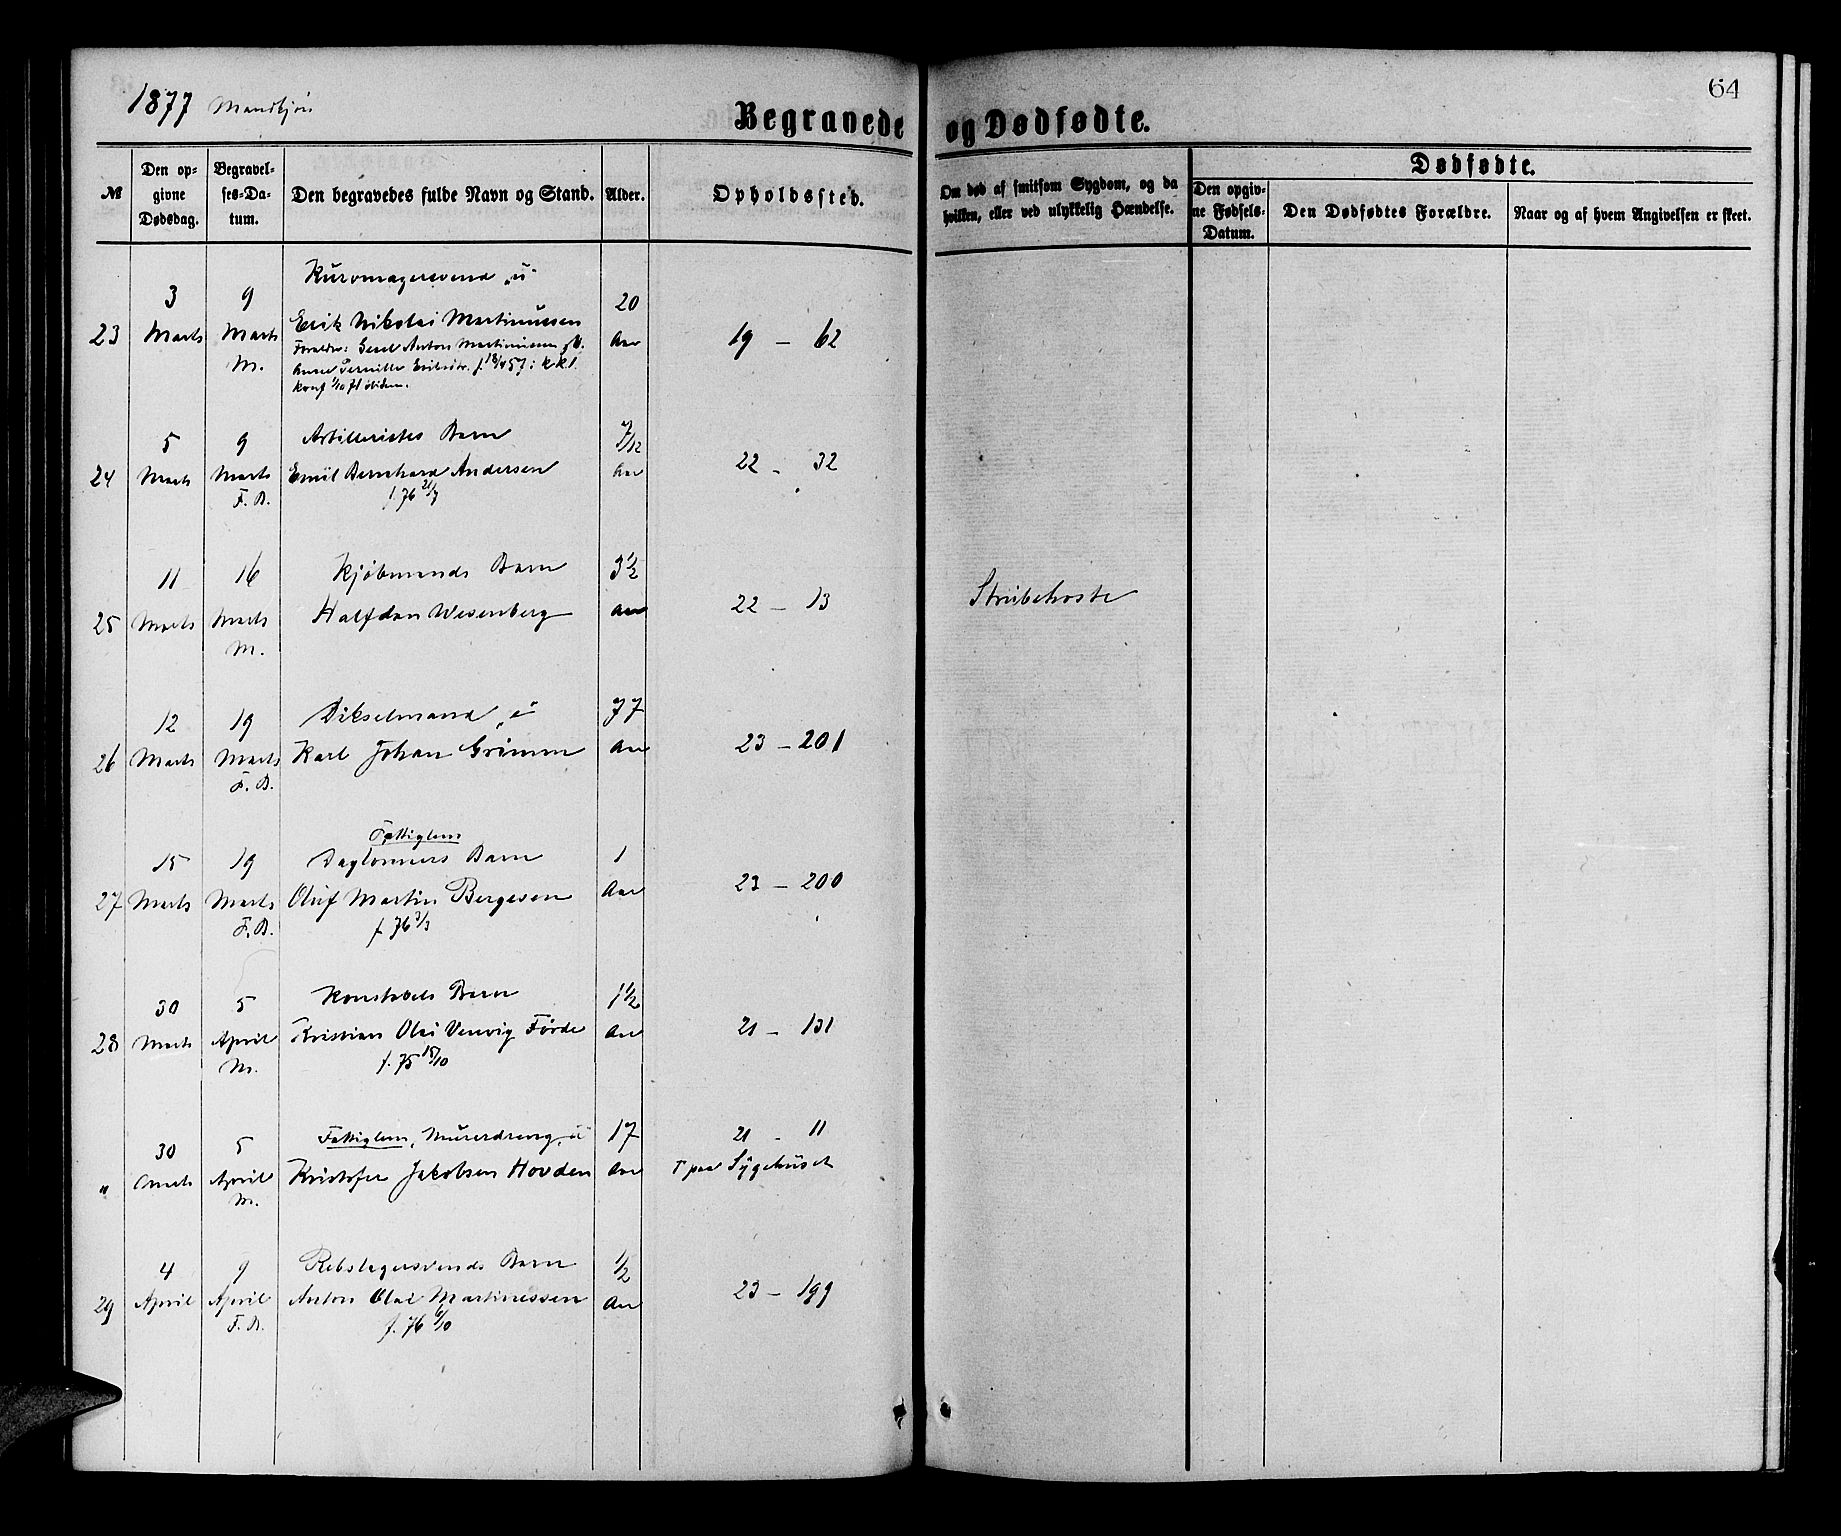 1877 Mandkjøn
64
Begravede og Dødfødte.
№
Den op-
givne
Dødsdag.
Begravel-
ses-Da-
tum.
Den begravedes fulde Navn og Stand.
Alder.
Opholdssted.
Om død af smitsom Sygdom, og da
hvilken, eller ved ulykkelig Hændelse.
Dødfødte.
Den opgiv-
ne Fødsels-
Datum.
Den Dødfødtes Forældre.
Naar og af hvem Angivelsen er skeet.
23
3
Marts
9
Marts
M.
Kurvmagersvend „u"
Erik Nikolai Martinussen
Anton Martinussen
Anne Pernille f. 18/4 57
20
Aar
19 - 62
24
5
Marts
9
Marts
F. B.
Artilleristes Barn
Emil Bernhard Andersen
f. 76 21/7
7/12
Aar
22 - 32
25
11
Marts
16
Marts
M.
Kjøbmands Barn
Halfdan Wesenberg
3 1/2
Aar
22 - 13
Strubehoste
26
12
Marts
19
Marts
F. B.
Karl Johan Grimm
77
Aar
23 - 201
27
15
Marts
19
Marts
F. B.
Fattiglem
Daglønners Barn
Oluf Martin Bergesen
f. 76 3/3
1
Aar
23 - 200
28
30
Marts
5
April
M.
Konstabels Barn
Kristian Olai Venvig Förde
f. 75 15/10
1 1/2
Aar
21 - 131
"
30
Marts
5
April
M.
Fattiglem, Murerdreng, u"
Kristofer Jakobsen Hovden
17
Aar
21 - 11
† paa Sygehuset
29
4
April
9
April
F. B.
Rebslagersvends Barn
Anton Olai Martinussen
f. 76 6/10
1/2
Aar
23 - 199